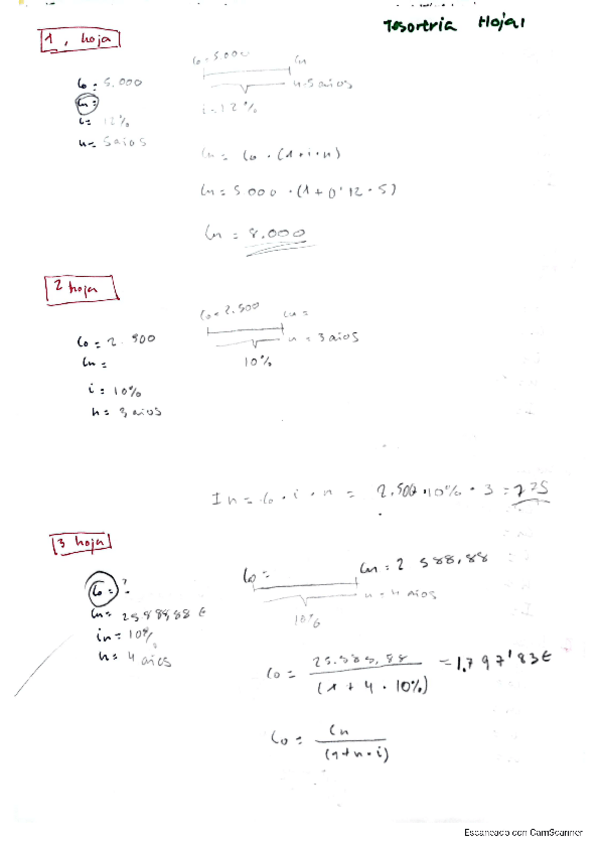 Tesorería Hoja 1
1, hoja
Co: 5.000
Cn:
i= 12%
n= 5 años
Co: 5.000 Cn
n=5 años
i=12%
Cn = Co · (1+i·n)
Cn = 5 000 · (1+0'12·5)
Cn = 8.000
2 hoja
Co = 2.500
Cn =
i = 10%
n = 3 años
Co = 2.500 Cn =
n = 3 años
10%
In = Co · i · n = 2.500·10% · 3 =
3 hoja
Co = ?
Cn=
in = 10%
n = 4 años
Co = Cn = 2 588,88
n = 4 años
10%
Co =
(1 + 4 · 10%)
Co = Cn
(1+n·i)
Escaneado con CamScanner